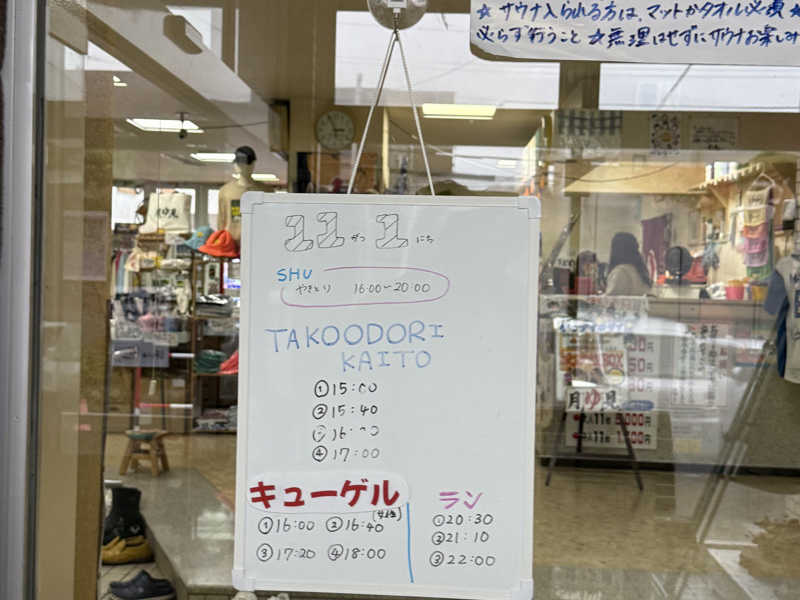 ★ サウナ入られる方は、マットかタオル必須★
必らず行うこと ☆無理はせずにサウナお楽しみ
11がつ 1にち
SHU
やきとり 16:00~20:00
TAKOODORI
KAITO
①15:00
②15:40
④17:00
キューゲル
①16:00 ②16:40
③17:20 ④18:00
ラン
①20:30
②21:10
③22:00
月ゆ見